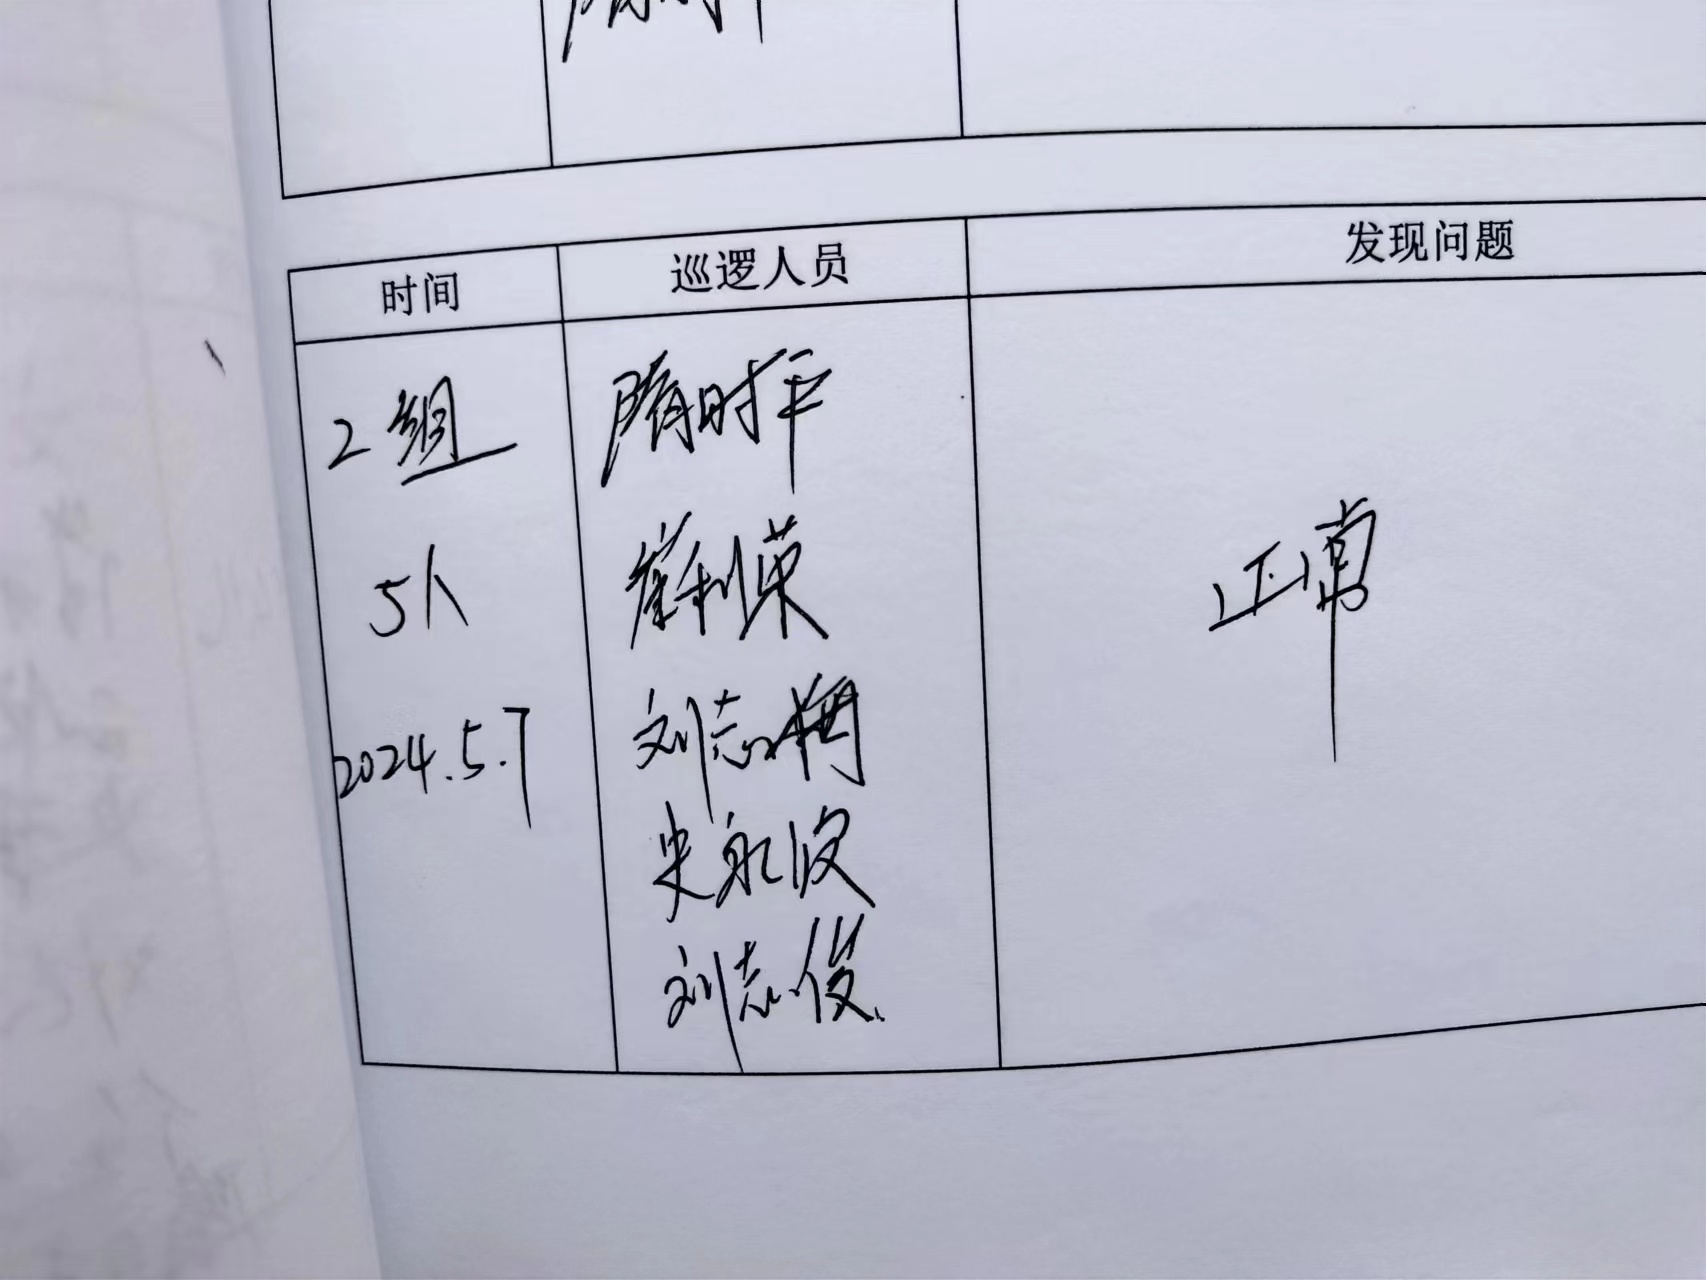 时间 巡逻人员 发现问题
2组 隋时平
5人 崔利荣 正常
2024.5.7 刘志梅
史永波
刘志俊